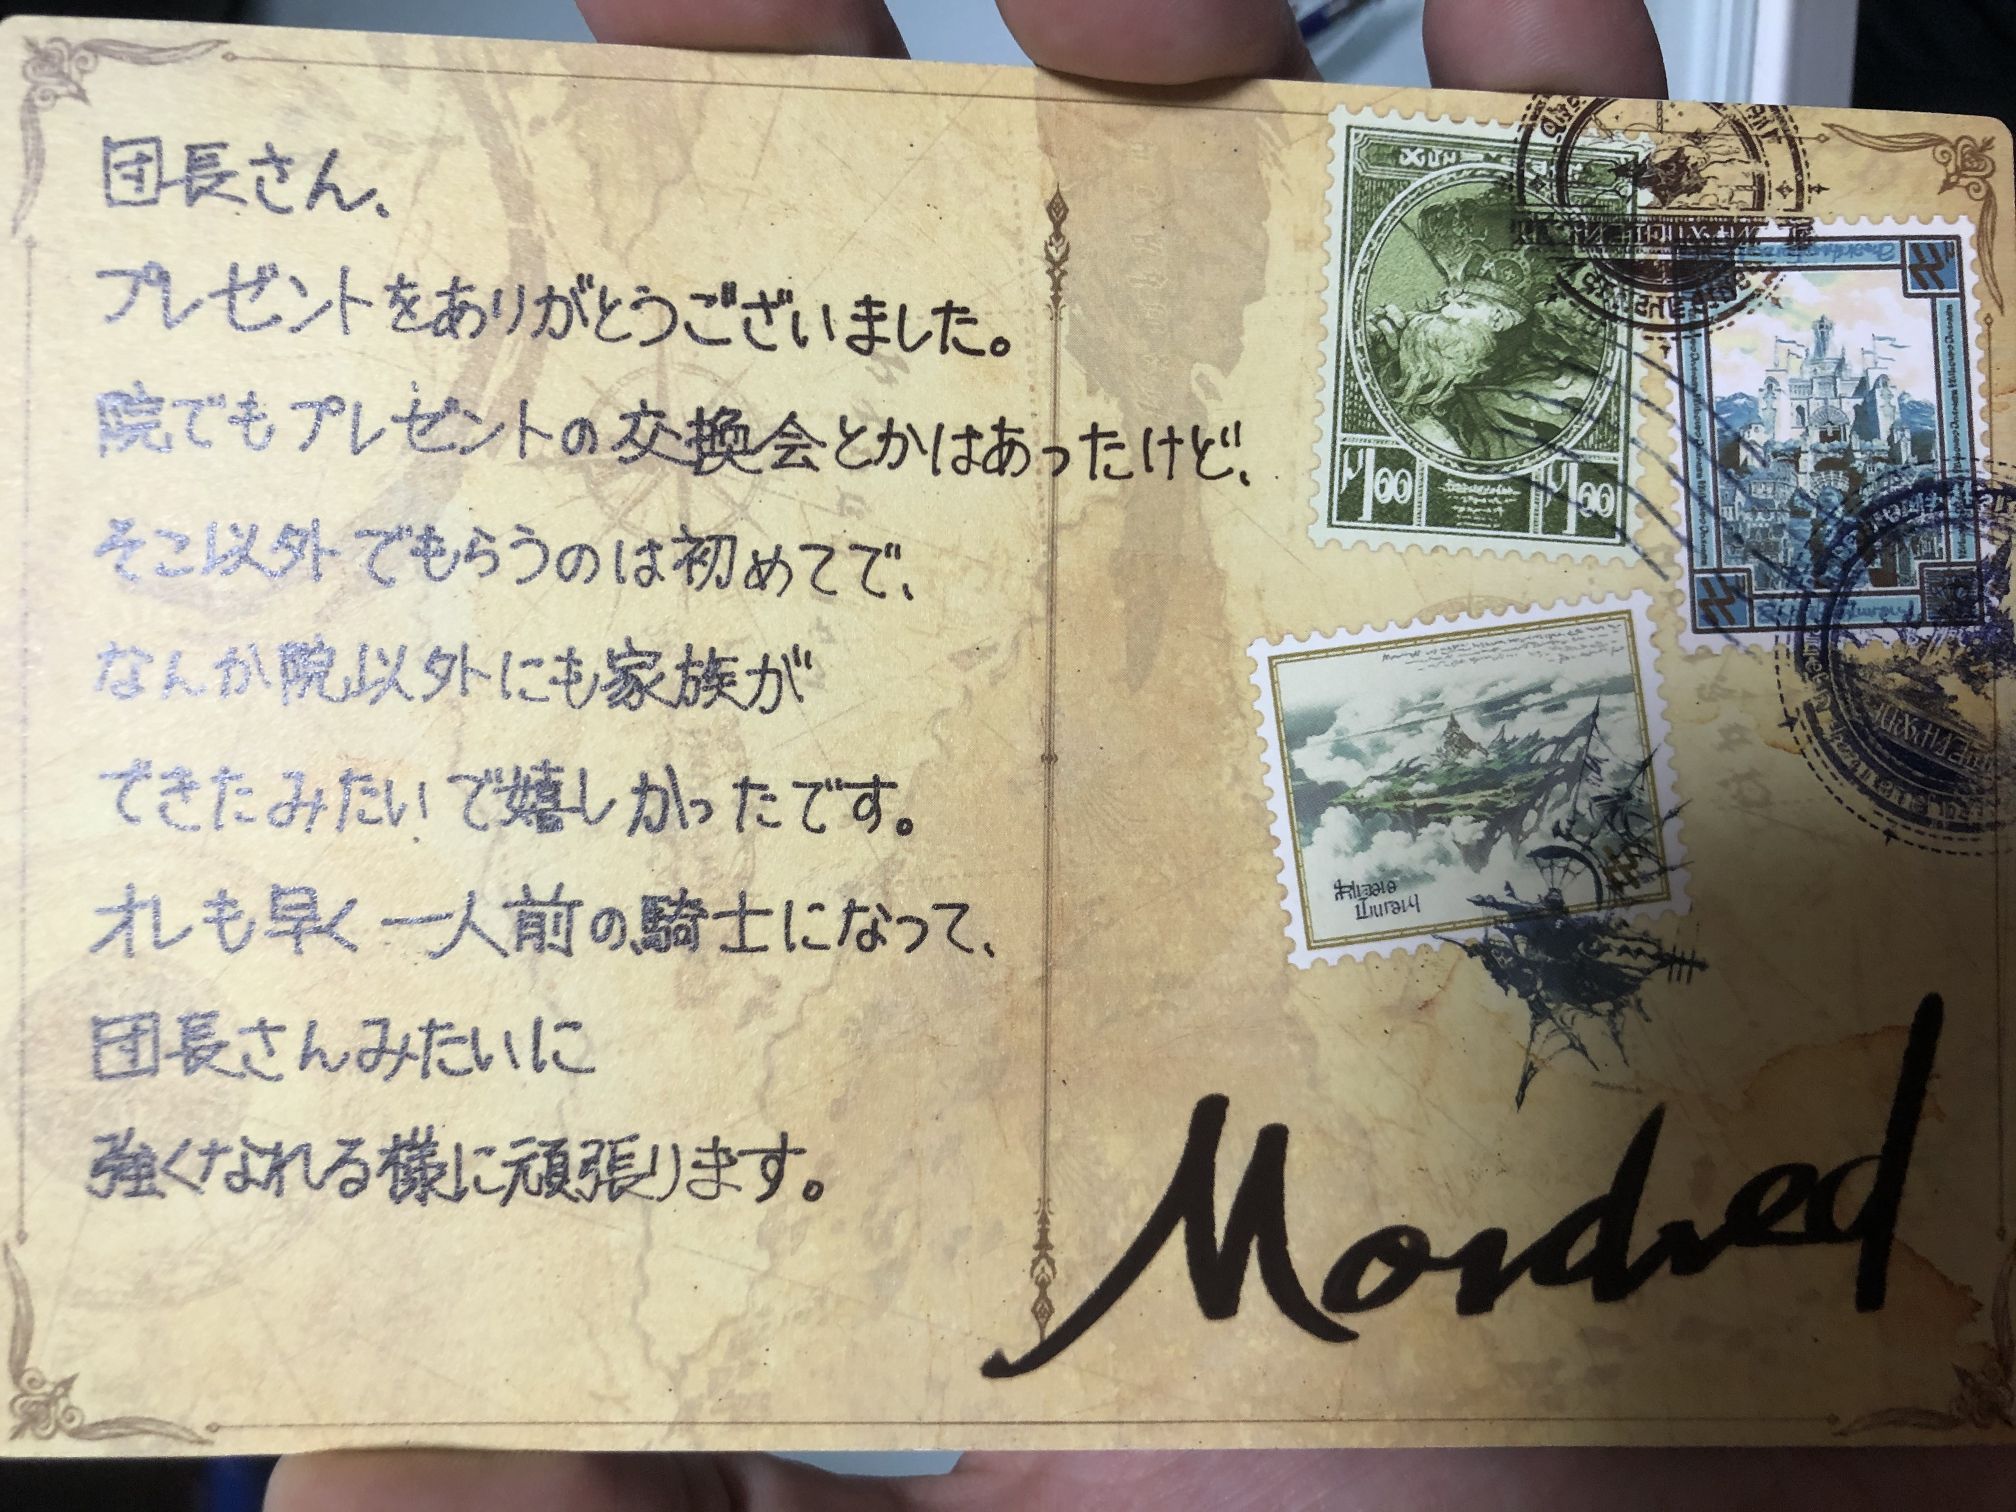 団長さん、
プレゼントをありがとうございました。
院でもプレゼントの交換会とかはあったけど、
そこ以外でもらうのは初めてで、
なんか院以外にも家族が
できたみたいで嬉しかったです。
オレも早く一人前の騎士になって、
団長さんみたいに
強くなれる様に頑張ります。
Mordred